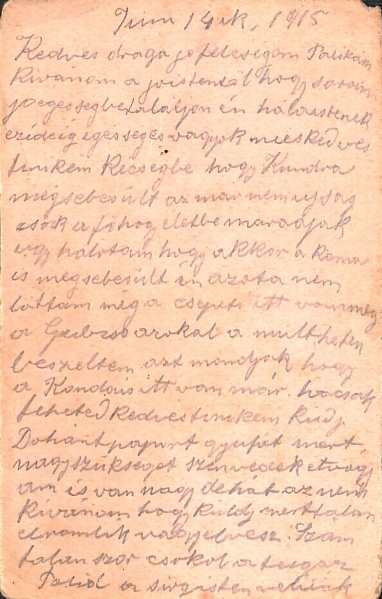 Juni 14ik, 1915
Kedves draga jo felesegem Palikám
Kivanom a joistentöl hogy soraim
jo egessegbe talaljon én hala istenek
ezideig egesseges vagyok kedves
tinikem hogy Kundra
megsebesült az mar nem ujsag
csak a fö hogy eletbe maradjak
ugy halotam hogy akkor a koma
is megsebesült én azota nem
láttam meg a csepeti itt van meg
a azokal a mult heten
beszeltem azt mondjak hogy
a itt van már. ha csak
teheted Kedves tinikem küdj
Dohánt papirt gyufát mert
nagy szükseget szenvedek etvágy
am is van nagy de hát az nem
kivanom hogy küldj mert talan
elromlik vagy elvesz. Szám
talan szor csokol a te igaz
Palid a viszontlatas